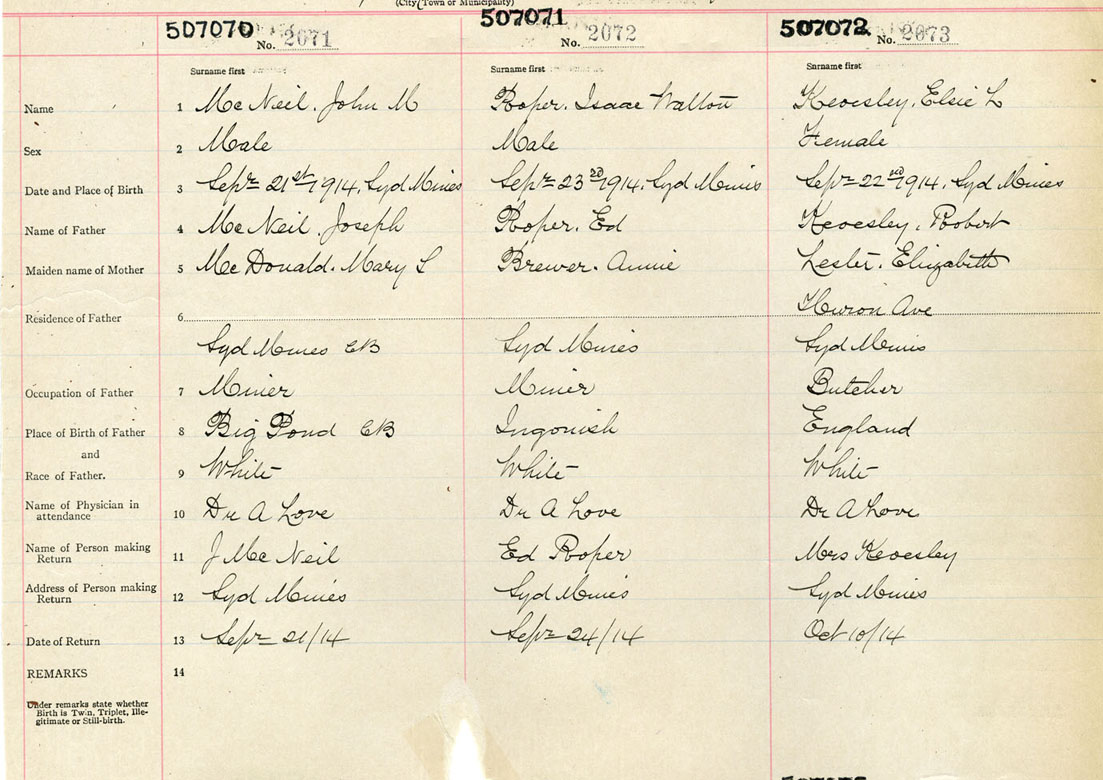 (City, Town or Municipality)
507070 No. 2071 507071 No. 2072 507072 No. 2073
Surname first Surname first Surname first
Name 1 McNeil. John M Roper. Isaac Walton Keovesley. Elsie L
Sex 2 Male Male Female
Date and Place of Birth 3 Sepr 21st 1914. Syd Mines Sepr 23rd 1914. Syd Mines Sepr 22nd 1914. Syd Mines
Name of Father 4 McNeil. Joseph Roper. Ed Keovesley. Robert
Maiden name of Mother 5 McDonald. Mary S Brewer. Annie Lester. Elizabeth
Residence of Father 6 Huron Ave
Syd Mines CB Syd Mines Syd Mines
Occupation of Father 7 Miner Miner Butcher
Place of Birth of Father 8 Big Pond CB Ingonish England
and
Race of Father. 9 White White White
Name of Physician in attendance 10 Dr A Love Dr A Love Dr A Love
Name of Person making Return 11 J McNeil Ed Rooper Mrs Keovesley
Address of Person making Return 12 Syd Mines Syd Mines Syd Mines
Date of Return 13 Sepr 21/14 Sepr 24/14 Oct 10/14
REMARKS 14
Under remarks state whether
Birth is Twin, Triplet, Ille-
gitimate or Still-birth.